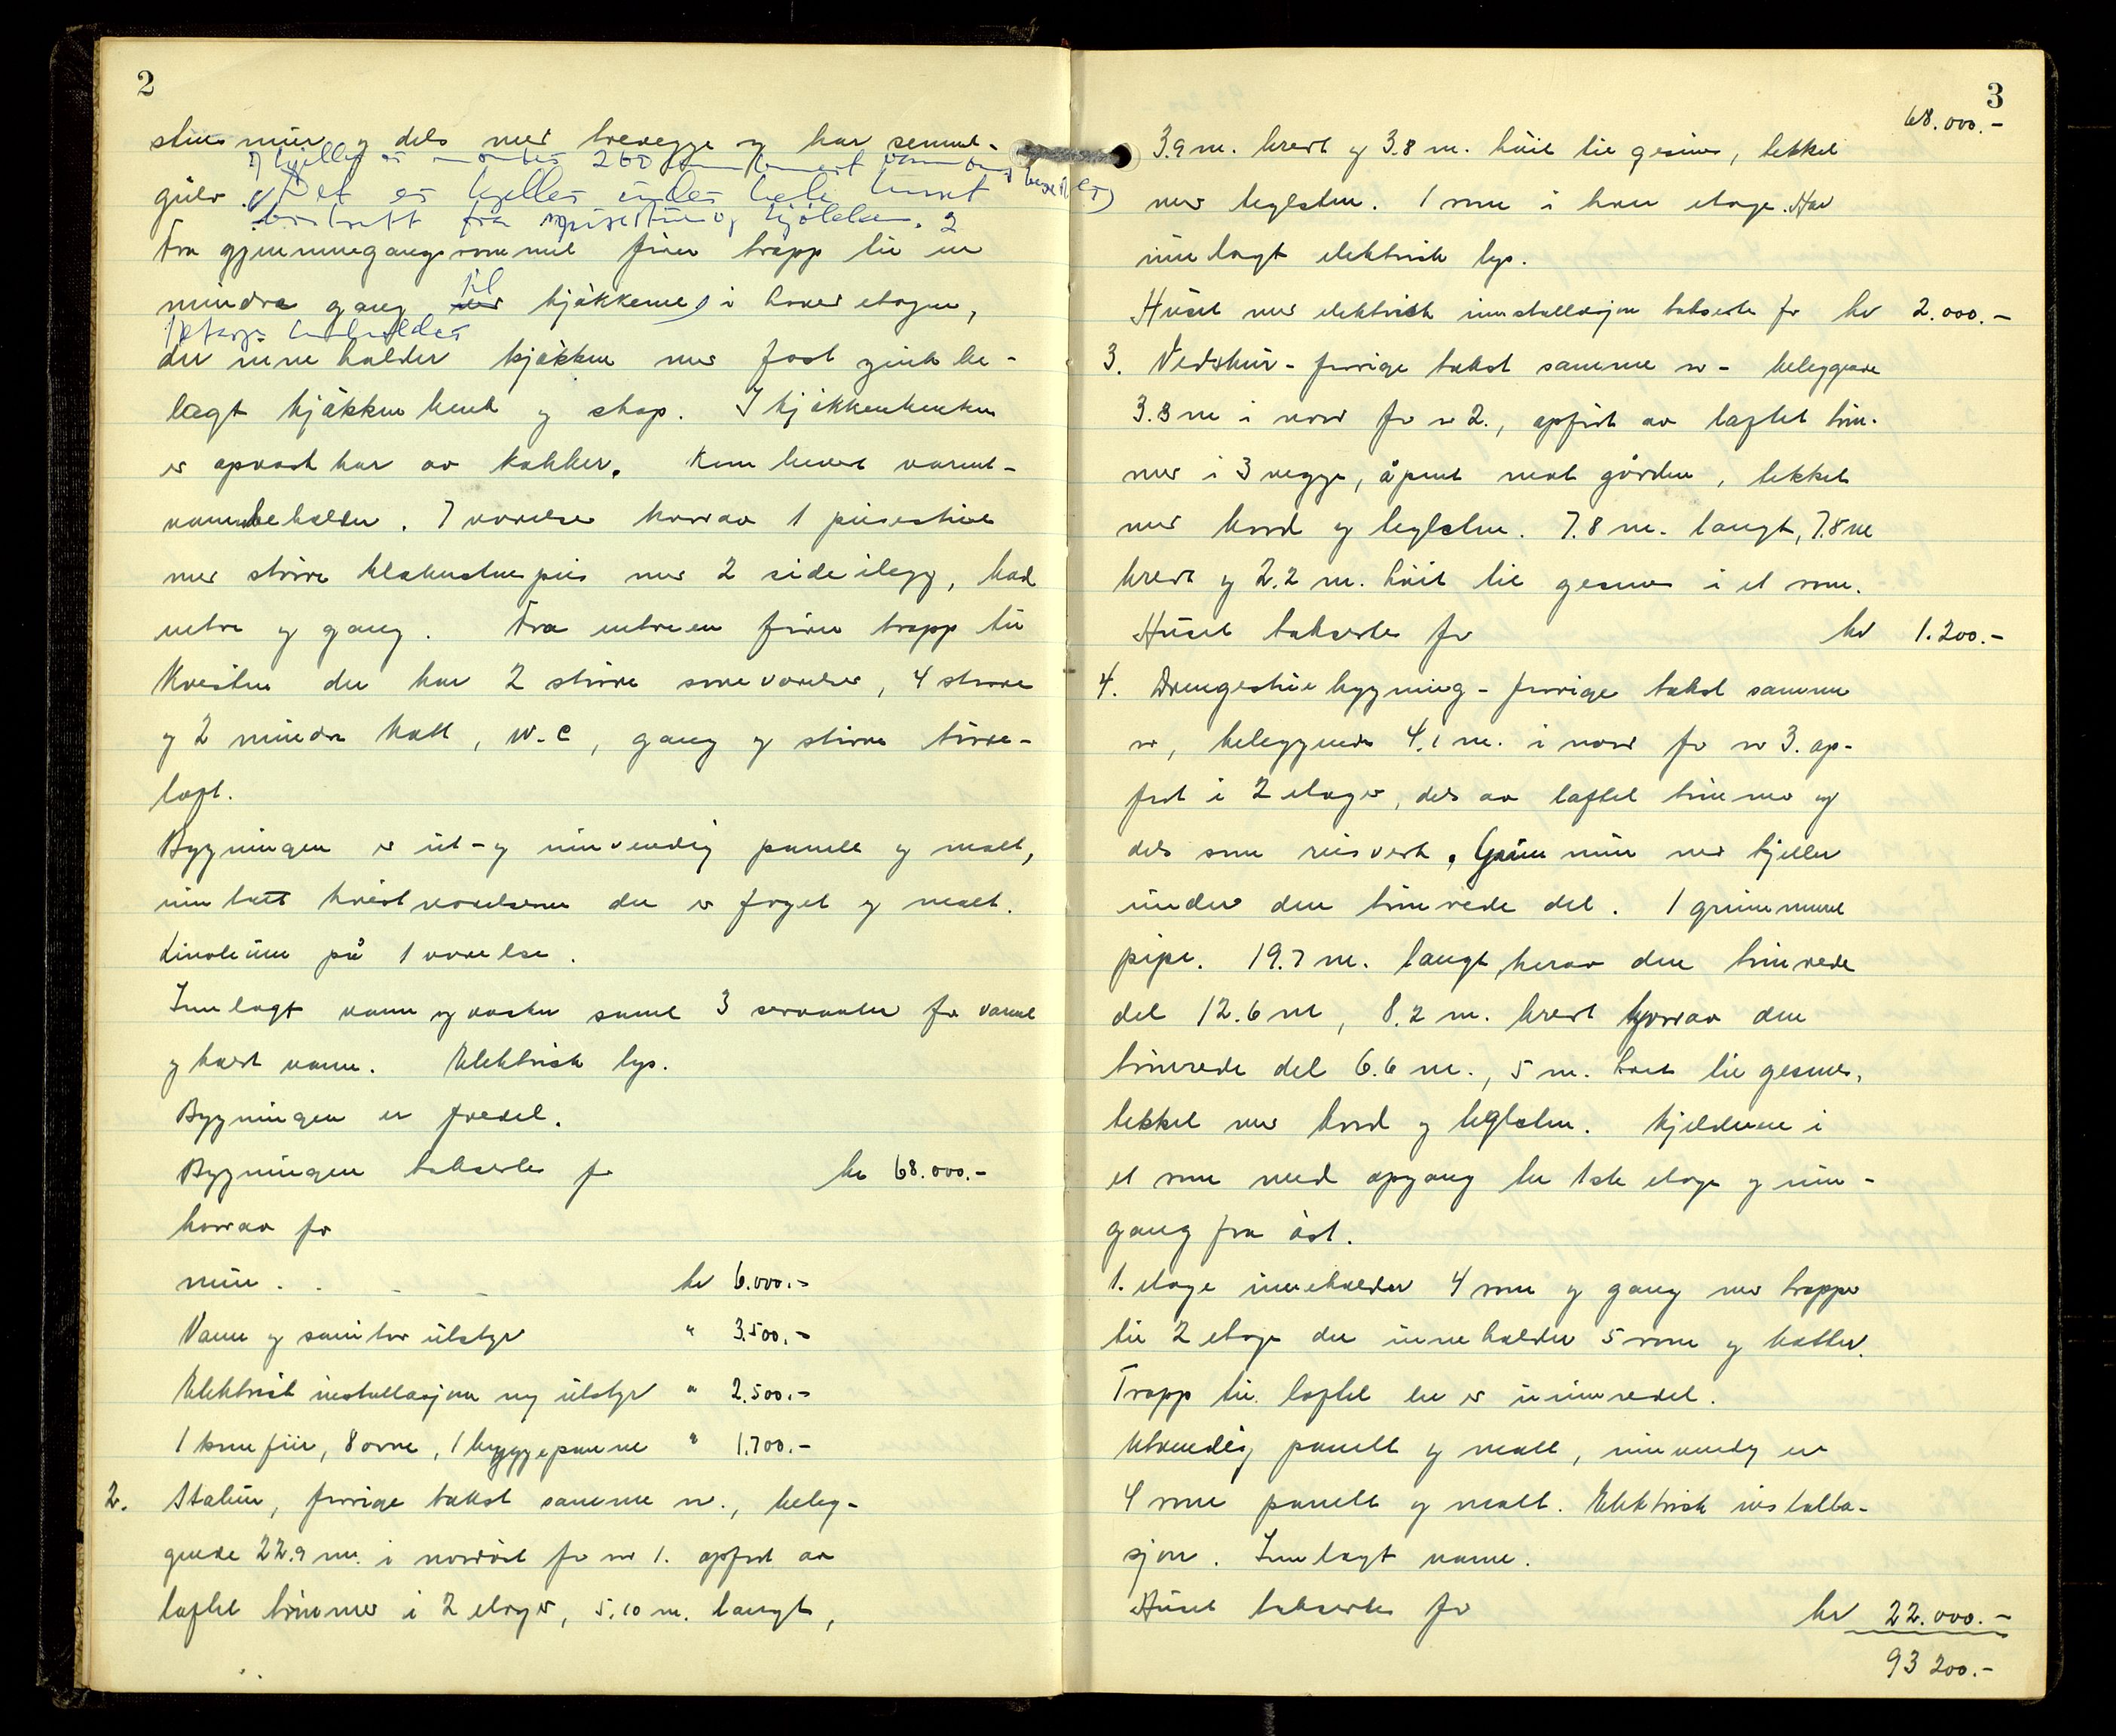 2
stens mur og dels med trevegge og har sement-
I kjeller er montert 200
gulv. Det er kjeller under hele huset
fra spisestue og kjøkken.
Fra gjennemgangsrommet fører trapp til en
mindre gang til kjøkkenet i hovedetagen,
1 etasje inneholder
der inneholder kjøkken med fast zink be-
lagt kjøkkenbenk og skap. I kjøkkenbenken
er opvaskkar av kobber. Kombinert varmt-
vannsbeholder. 7 værelser hvorav 1 peisestue
med større klebersteinspeis med 2 sideilegg, bad
entre og gang. Fra entreen fører trapp til
Kvisten der har 2 større soveværelser, 4 større
og 2 mindre kott, W.C, gang og større tørre-
loft.
Bygningen er ut- og innvendig panelt og malt,
inntatt kvistværelsene der er forget og malt.
Linoleum på 1 værelse.
Innlagt vann og vasker samt 3 servanter for varmt
og kaldt vann. Elektrisk lys.
Bygningen er fredet.
Bygningen takseres for kr 68.000.-
hvorav for
mur . . - - kr 6.000.-
Vann og sanitær utstyr " 3.500.-
Elektrisk installasjon og utstyr " 2.500.-
1 komfür, 8 ovne, 1 bryggepanne " 1.700.-
2. Stabur, forrige takst samme nr., beleg-
gende 22.9 m. i nordøst for nr 1. opført av
laftet tømmer i 2 etager, 5.10 m. langt,
3
68.000.-
3.9 m. bredt og 3.8 m. höit til gesims, tekket
med teglsten. 1 rom i hver etage. Har
innlagt elektrisk lys.
Huset med elektrisk innstallasjon takseres for kr 2.000.-
3. Vedskur - forrige takst samme nr - beleggende
3.3 m i nord for nr 2., opført av laftet töm-
mer i 3 vegge, åpent mot gården, tekket
med bord og teglsten. 7.8 m. langt, 7.8 m
bredt og 2.2 m. höit til gesims i et rom.
Huset takseres for kr 1.200.-
4. Drengestuebygning - forrige takst samme
nr, beleggende 4.1 m. i nord for nr 3. op-
ført i 2 etager, dels av laftet tømmer og
dels som reisverk. Grunnmur med kjeller
under den tømrede del. 1 gjennemmuret
pipe. 19.7 m. langt, herav den tømrede
del 12.6 m, 8.2 m. bredt hvorav den
tømrede del 6.6 m., 5 m. höit til gesims,
tekket med bord og teglsten. Kjelderen i
et rom med opgang til 1ste etage og inn-
gang fra öst.
1. etage inneholder 4 rom og gang med trapper
til 2 etage der inneholder 5 rom og kotter.
Trapp til loftet der er uinnredet.
Utvendig panelt og malt, innvendig er
4 rom panelt og malt. Elektrisk installa-
sjon. Innlagt vann.
Huset takseres for kr 22.000.-
93 200.-